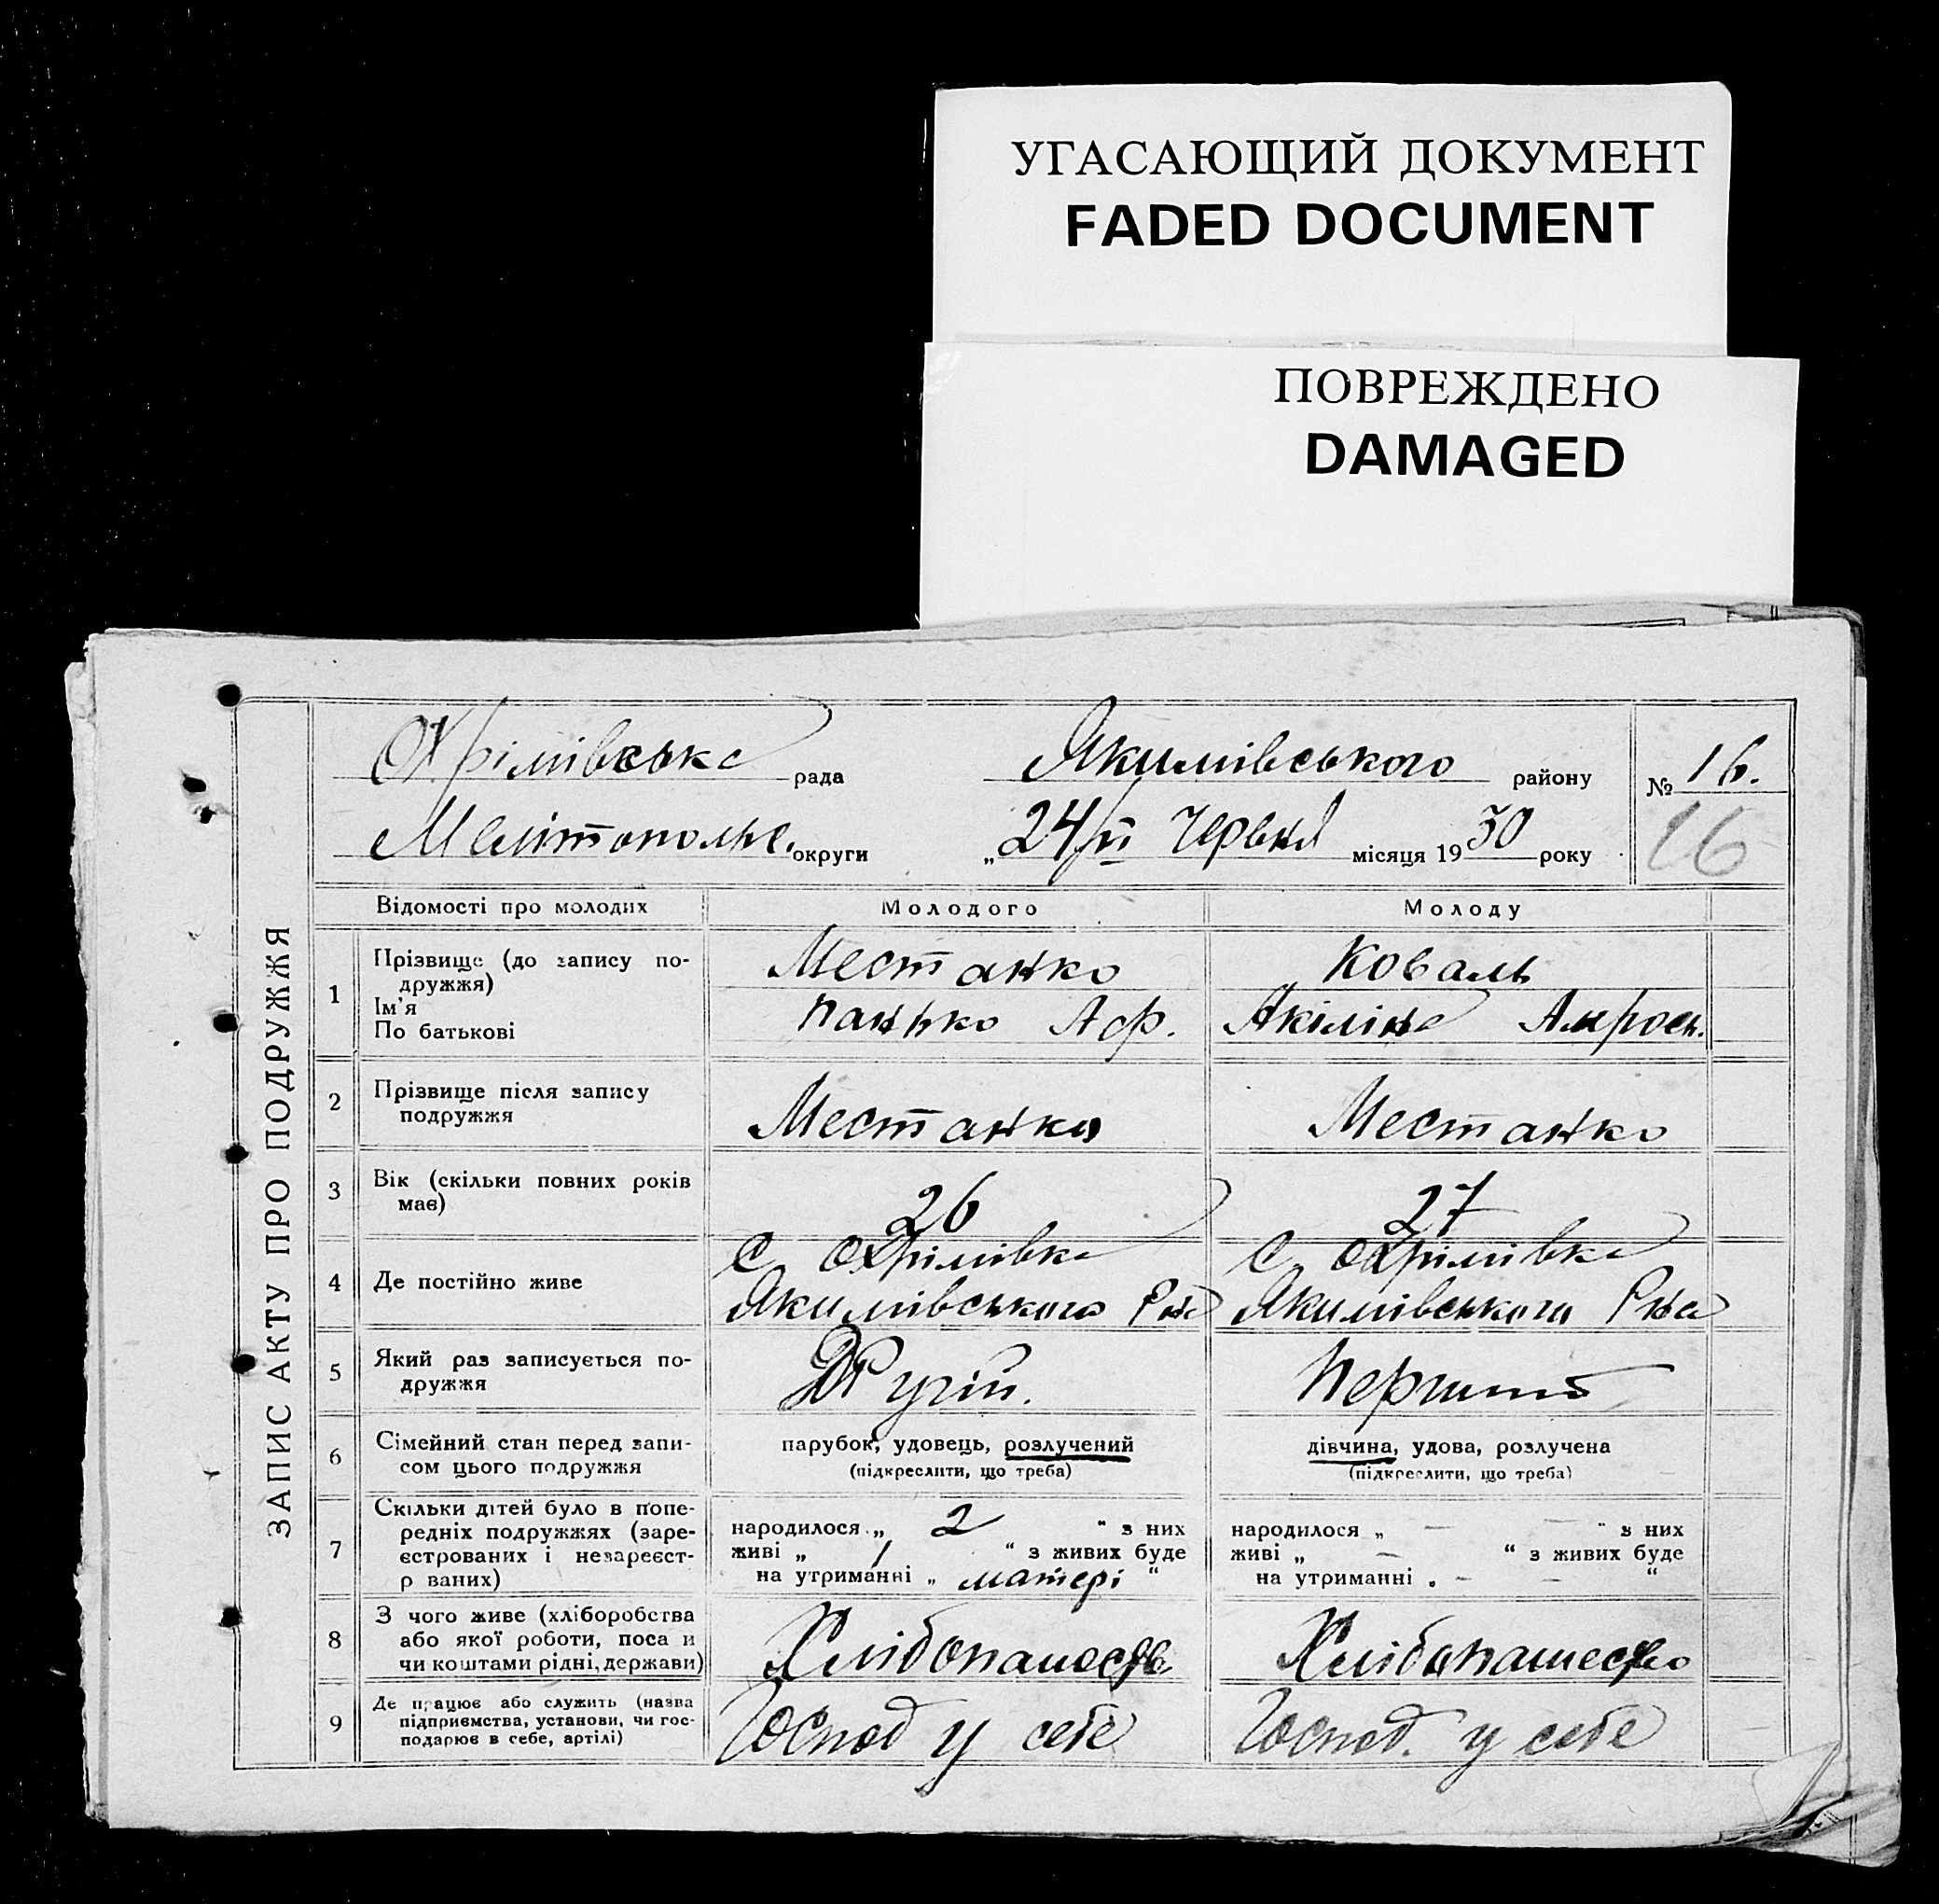 УГАСАЮЩИЙ ДОКУМЕНТ
FADED DOCUMENT
ПОВРЕЖДЕНО
DAMAGED
ЗАПИС АКТУ ПРО ПОДРУЖЖЯ
Охрімівська рада Якимівського району № 16.
Мелітополье. округи „24/VI Червня місяця 1930 року 16
Відомості про молодих Молодого Молоду
1 Прізвище (до запису по-
дружжя) Местанко Коваль
Ім'я
По батькові Панько Аф. Акіліна Амрос.
2 Прізвище після запису
подружжя Местанко Местанко
3 Вік (скільки повних років
має) 26 27
4 Де постійно живе с Охрімівка с Охрімівка
Якимівського Р-на Якимівського Р-на
5 Який раз записується по-
дружжя Другій. Перший
6 Сімейний стан перед запи-
сом цього подружжя парубок, удовець, розлучений дівчина, удова, розлучена
(підкреслити, що треба) (підкреслити, що треба)
7 Скільки дітей було в попе-
редніх подружжях (заре-
єстрованих і незареєст-
р ваних)
народилося „ 2 “ з них народилося „ — — “ з них
живі „ 1 “ з живих буде живі „ — “ з живих буде
на утриманні „ матері “ на утриманні „ — — “
8 З чого живе (хліборобства
або якої роботи, поса и
чи коштами рідні, держави) Хлібопашество Хлібопашество
9 Де працює або служить (назва
підприємства, установи, чи гос-
подарює в себе, артілі) Господ у себе Господ. у себе